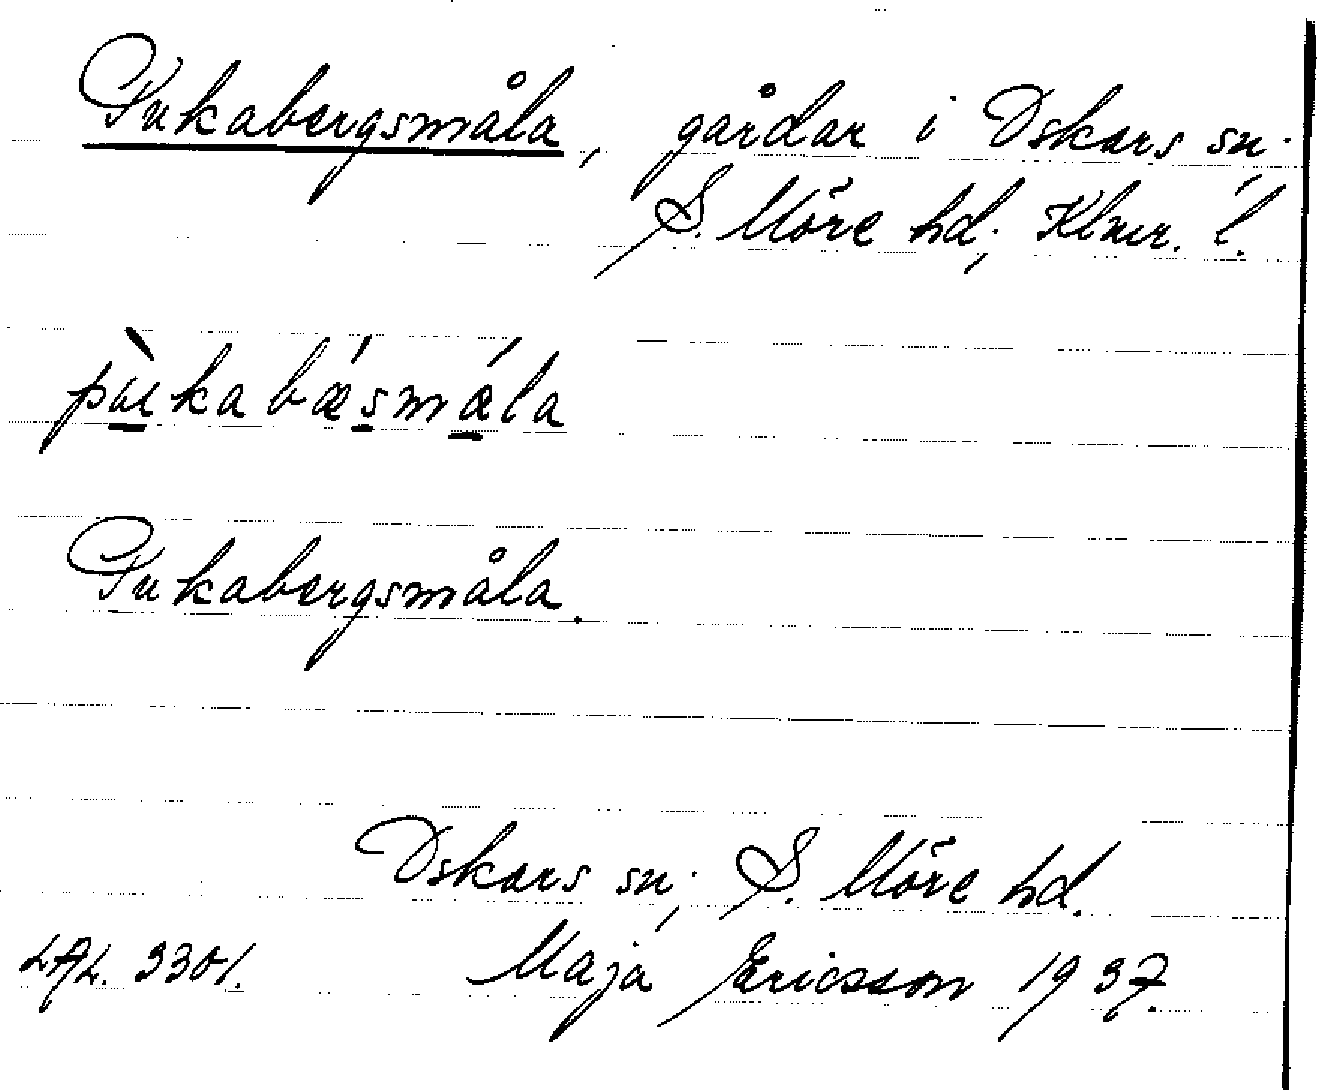 Pukabergsmåla, gårdar i Oskars sn.
S. Möre hd, Klmr. l.
pùkabǽsmåla
Pukabergsmåla.
Oskars sn, S. Möre hd.
LAL. 3301. Maja Ericsson 1937.